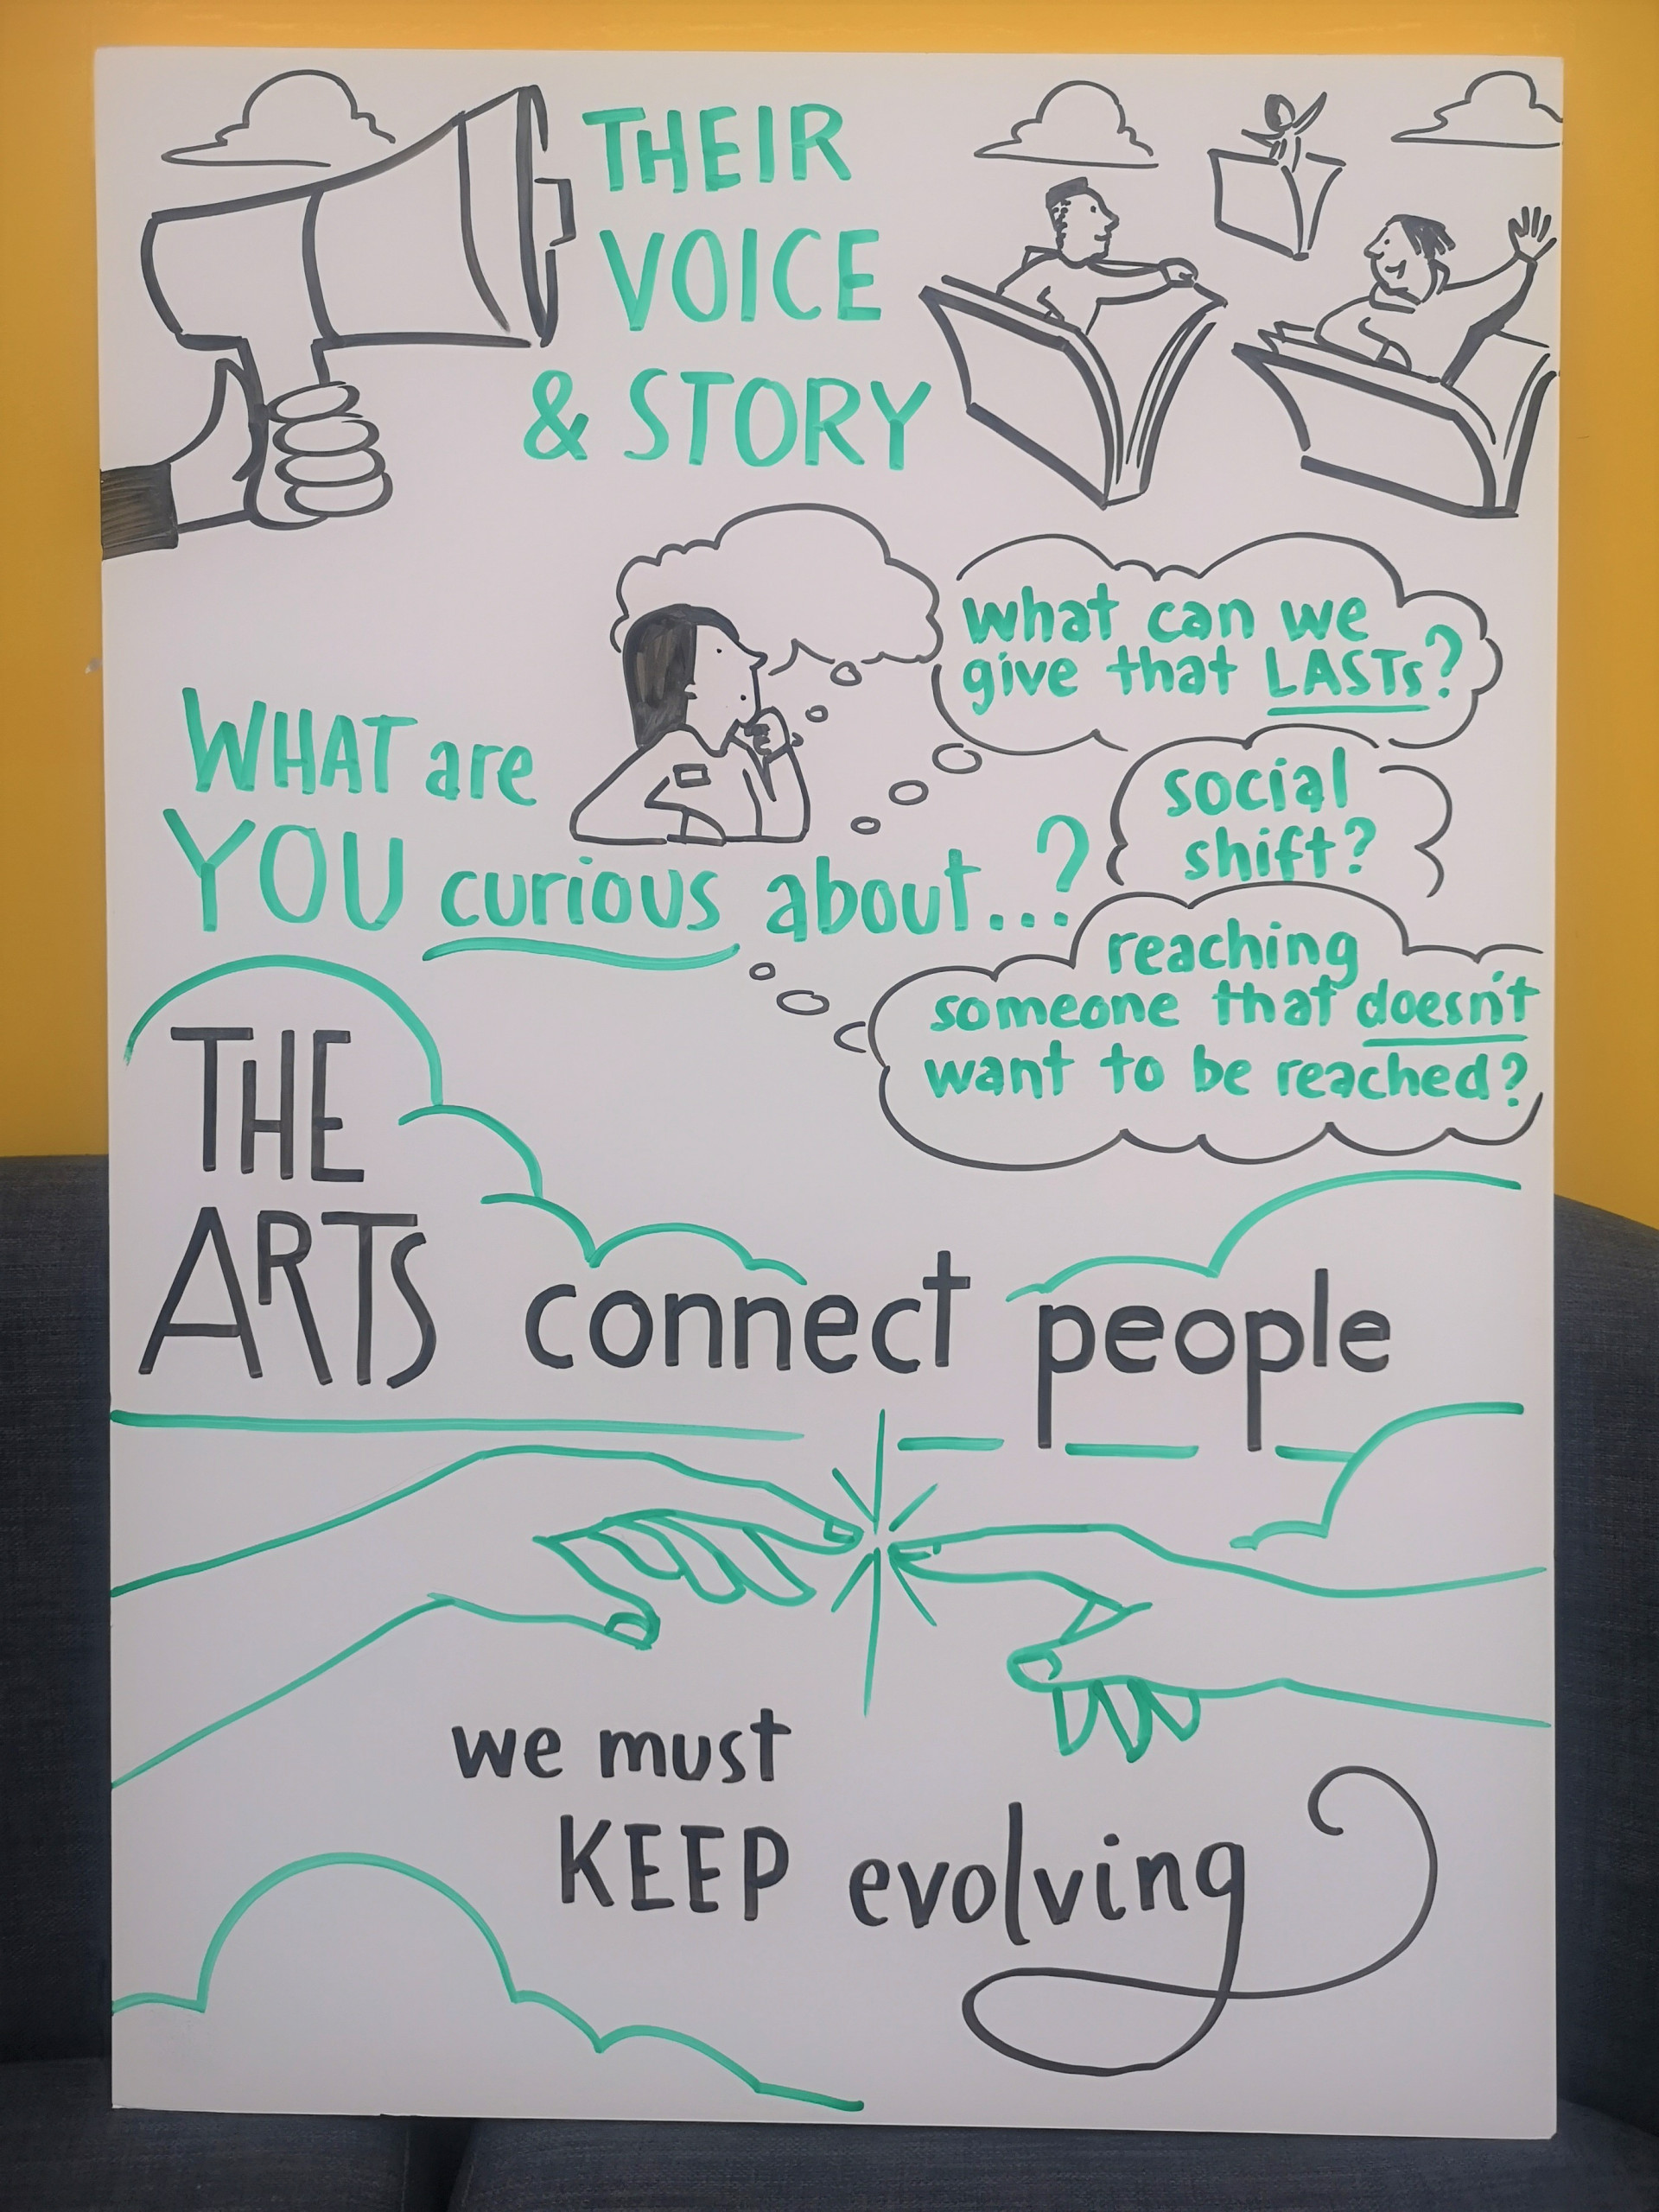 THEIR
VOICE
& STORY
what can we
give that LASTs?
social
shift?
WHAT are
YOU curious about...?
reaching
someone that doesn't
want to be reached?
THE
ARTS connect people
we must
KEEP evolving